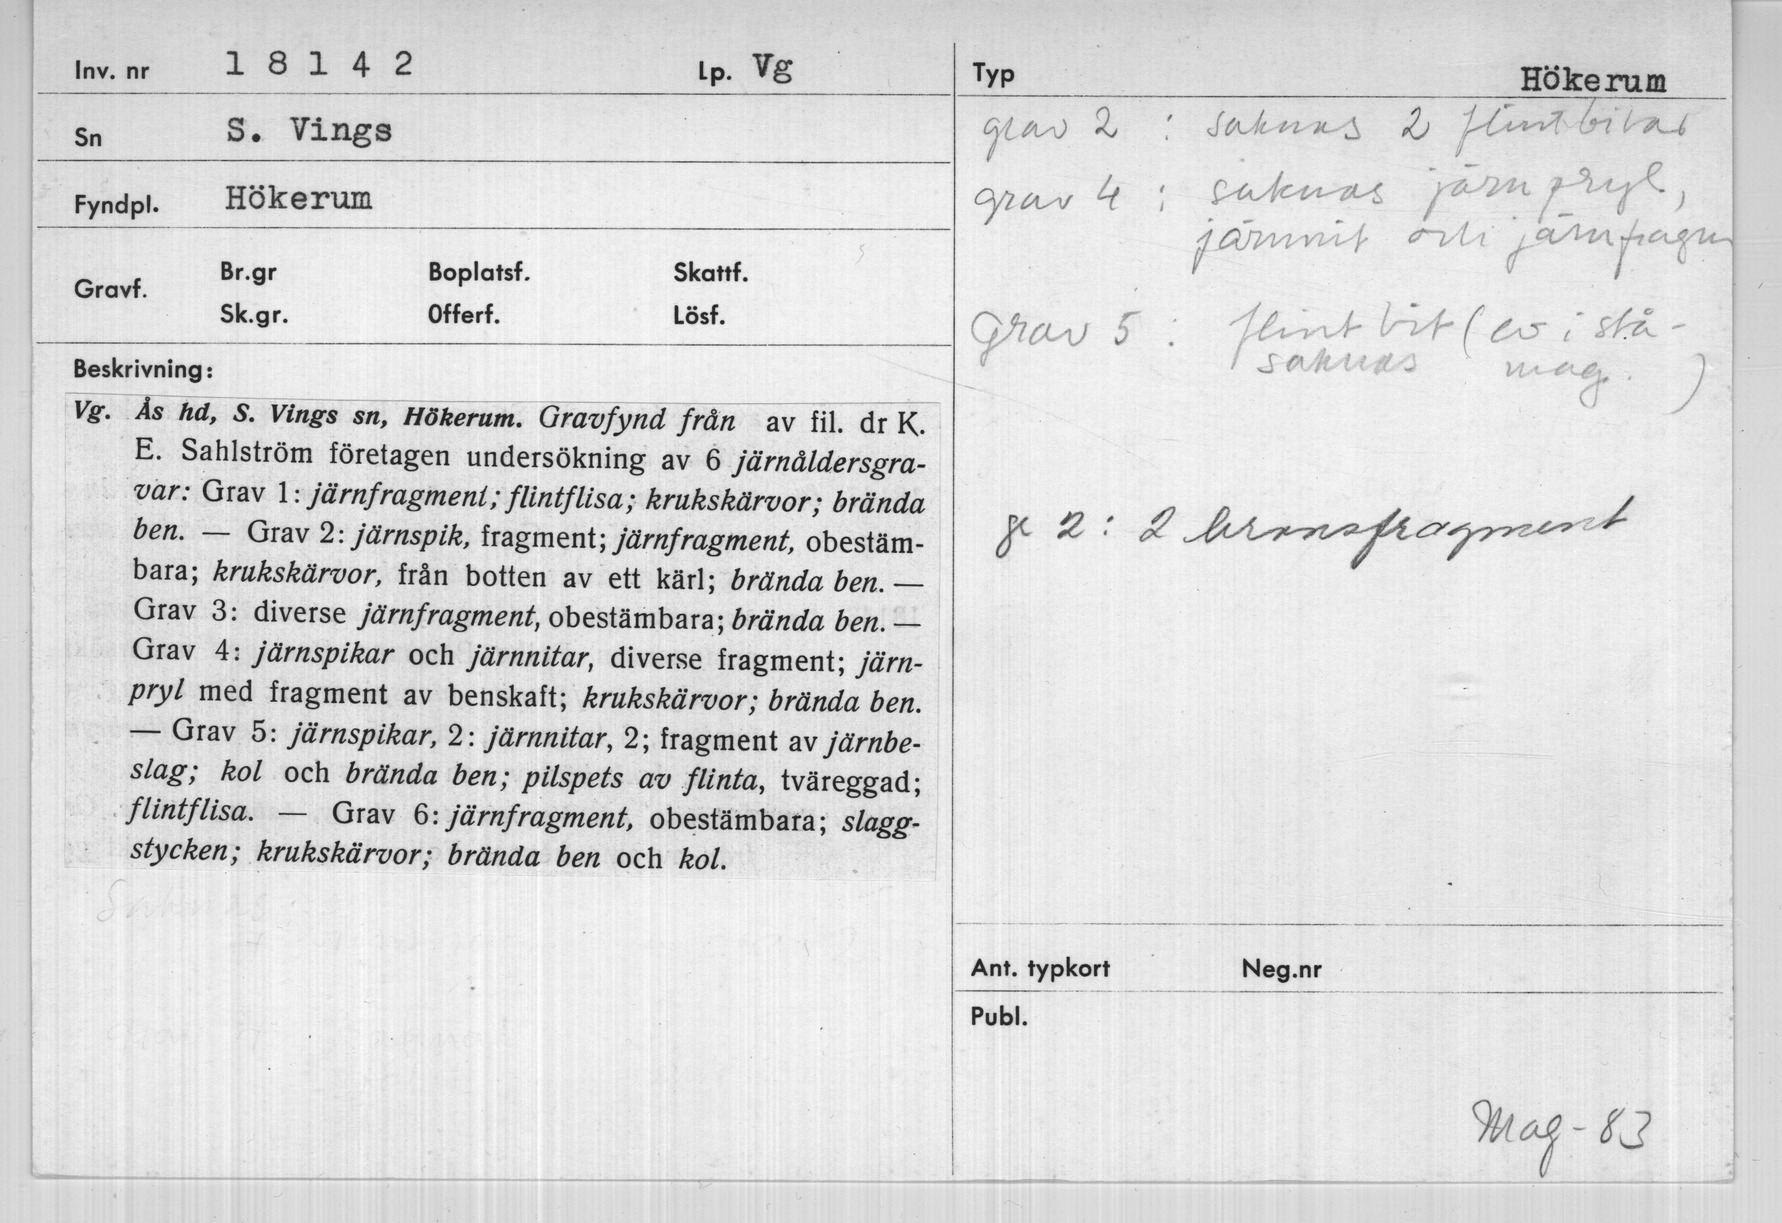 Inv. nr 18142 Lp. Vg
Sn S. Vings
Fyndpl. Hökerum
Gravf. Br.gr Boplatsf. Skattf.
Sk.gr. Offerf. Lösf.
Beskrivning:
Vg. Ås hd, S. Vings sn, Hökerum. Gravfynd från av fil. dr K.
E. Sahlström företagen undersökning av 6 järnåldersgra-
var: Grav 1: järnfragment; flintflisa; krukskärvor; brända
ben. — Grav 2: järnspik, fragment; järnfragment, obestäm-
bara; krukskärvor, från botten av ett kärl; brända ben. —
Grav 3: diverse järnfragment, obestämbara; brända ben. —
Grav 4: järnspikar och järnnitar, diverse fragment; järn-
pryl med fragment av benskaft; krukskärvor; brända ben.
— Grav 5: järnspikar, 2: järnnitar, 2; fragment av järnbe-
slag; kol och brända ben; pilspets av flinta, tväreggad;
flintflisa. — Grav 6: järnfragment, obestämbara; slagg-
stycken; krukskärvor; brända ben och kol.
Saknas
Typ Hökerum
grav 2 : saknas 2 flintbitar
grav 4 : saknas järnpryl,
järnnit och järnfragm
Grav 5 : flintbit (ev i stå-
saknas mag. )
gr 2 : 2 bronsfragment
Ant. typkort Neg.nr
Publ.
Mag - 83